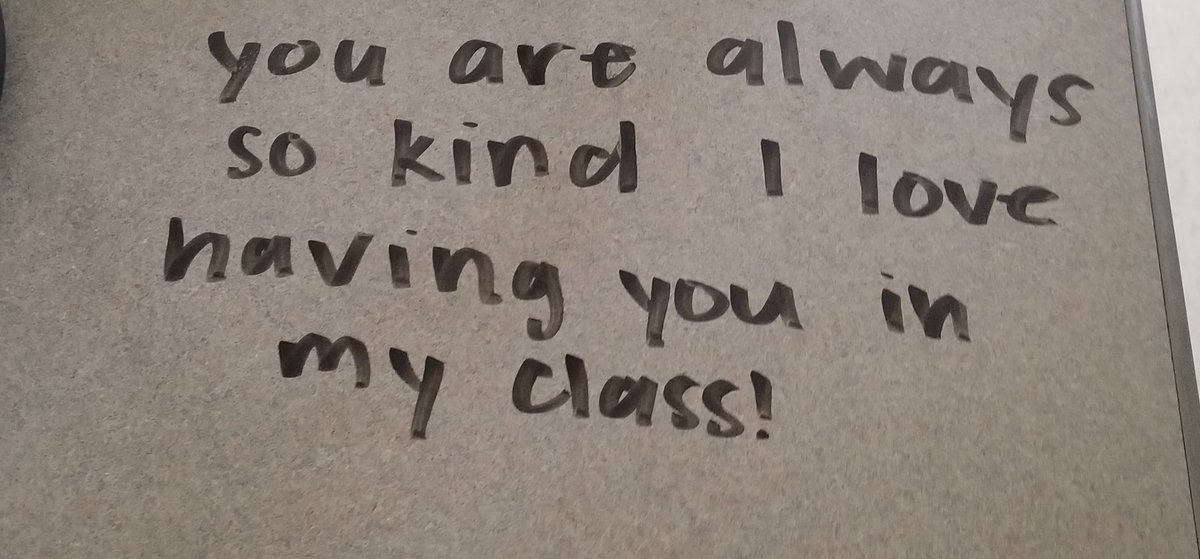 you are always
so kind I love
having you in
my class!